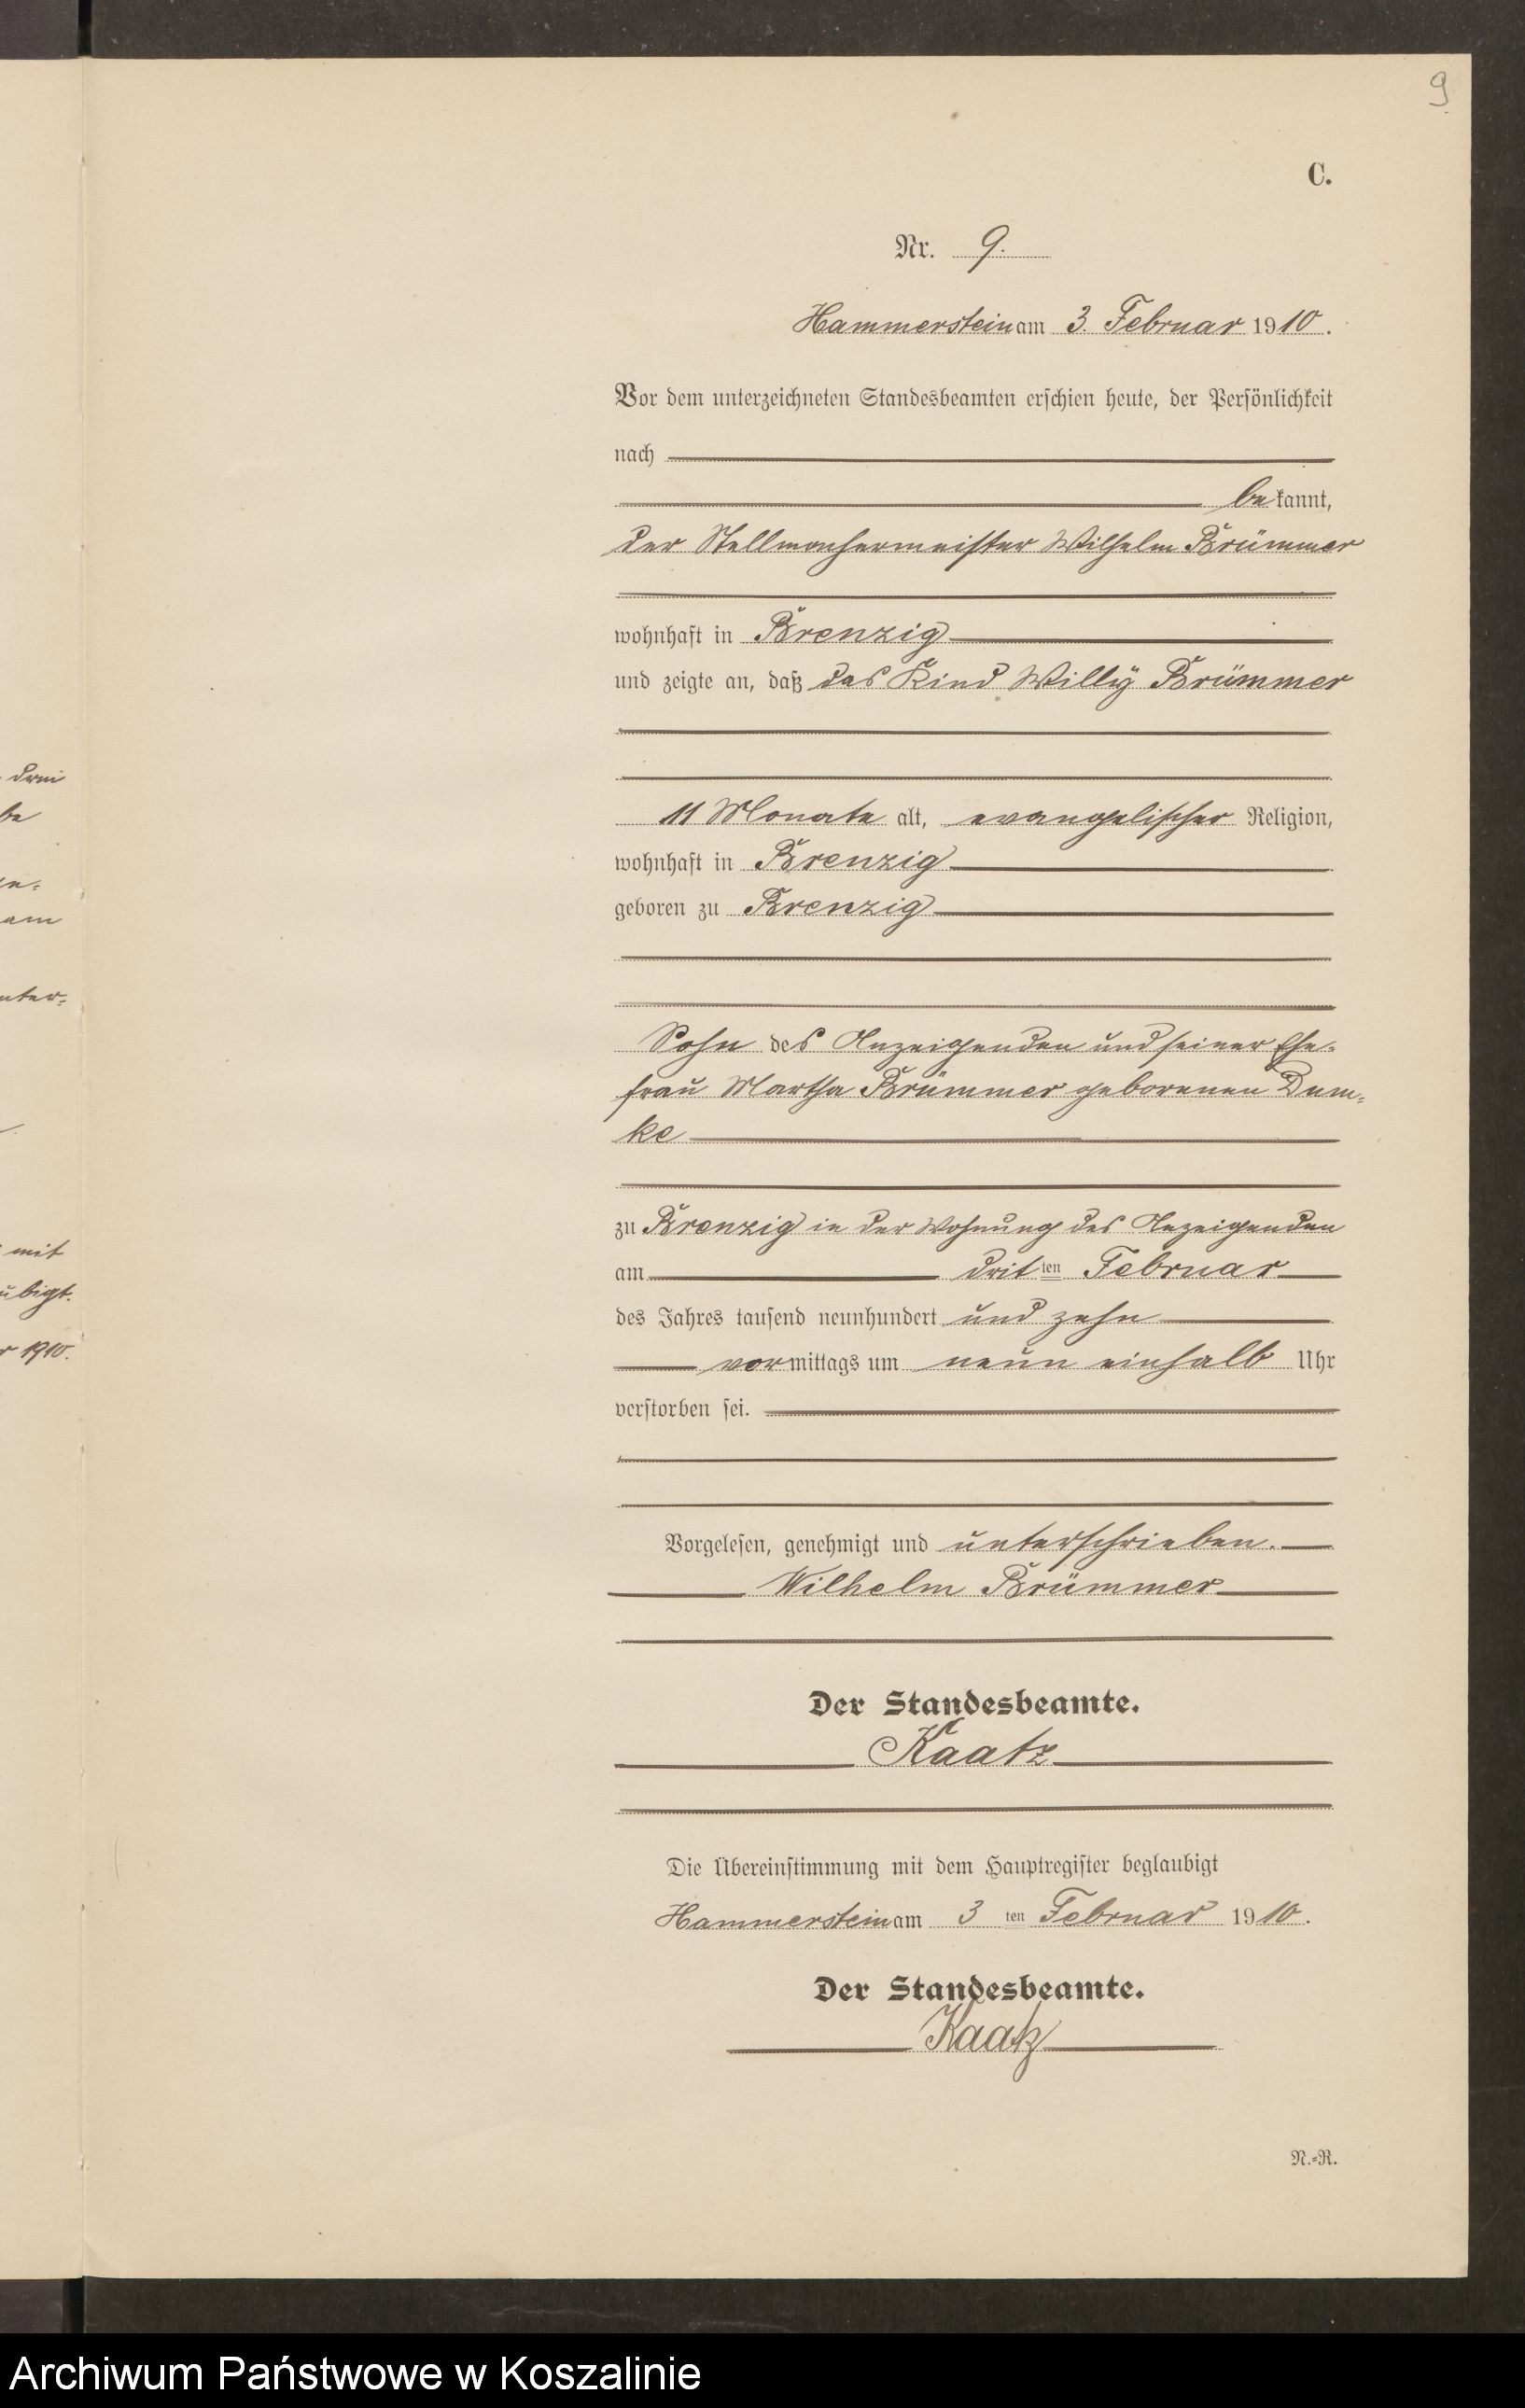 9
C.
Nr. 9.
Hammerstein am 3. Februar 1910.
Vor dem unterzeichneten Standesbeamten erschien heute, der Persönlichkeit
nach
bekannt,
der Stellmachermeister Wilhelm Brümmer
wohnhaft in Brenzig
und zeigte an, daß das Kind Willy Brümmer
11 Monate alt, evangelischer Religion,
wohnhaft in Brenzig
geboren zu Brenzig
Sohn des Anzeigenden und seiner Ehe-
frau Martha Brümmer geborenen Dum-
ke
zu Brenzig in der Wohnung des Anzeigenden
am dritten Februar
des Jahres tausend neunhundert und zehn
vormittags um neun einhalb Uhr
verstorben sei.
Vorgelesen, genehmigt und unterschrieben.
Wilhelm Brümmer
Der Standesbeamte.
Kaatz
Die Übereinstimmung mit dem Hauptregister beglaubigt
Hammerstein am 3 ten Februar 1910.
Der Standesbeamte.
Kaatz
N.-R.
drei
be
am
mit
1910.
Archiwum Państwowe w Koszalinie